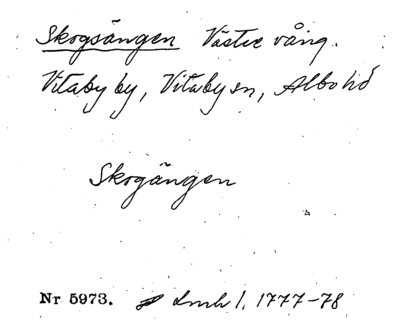 Skogsängen Västre vång.
Vitaby by, Vitaby sn, Albo hd
Skogängen
Nr 5973. Lmh 1. 1777-78